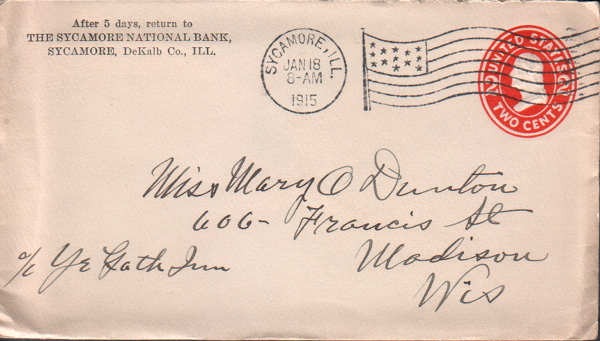 After 5 days, return to
THE SYCAMORE NATIONAL BANK,
SYCAMORE, DeKalb Co., ILL.
SYCAMORE, ILL.
JAN 18
8-AM
1915
UNITED STATES
TWO CENTS
2
2
Miss Mary O Dunton
606- Francis St
c/o Ye Gath Inn
Madison
Wis